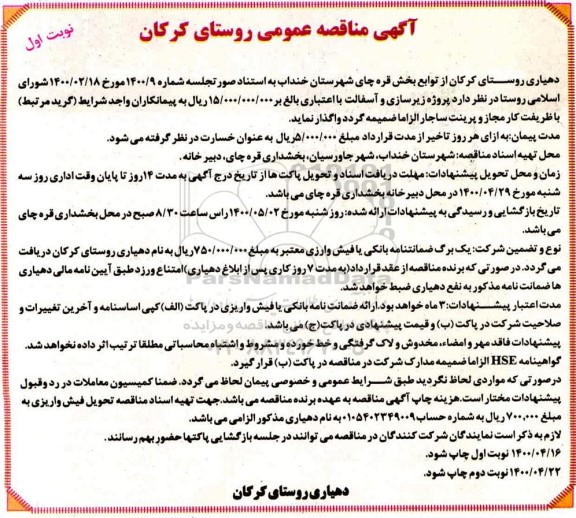 آگهی مناقصه عمومی روستای کرکان
نوبت اول
دهیاری روستای کرکان از توابع بخش قره چای شهرستان خنداب به استناد صورتجلسه شماره ۱۴۰۰/۹ مورخ ۱۴۰۰/۰۲/۱۸ شورای
اسلامی روستا در نظر دارد پروژه زیرسازی و آسفالت با اعتباری بالغ بر ۱۵/۰۰۰/۰۰۰/۰۰۰ ریال به پیمانکاران واجد شرایط (گرید مرتبط)
با ظرفیت کار مجاز و پرینت ساجار الزاما ضمیمه گردد واگذار نماید.
مدت پیمان: به ازای هر روز تاخیر از مدت قرارداد مبلغ ۵/۰۰۰/۰۰۰ ریال به عنوان خسارت در نظر گرفته می شود.
محل تهیه اسناد مناقصه: شهرستان خنداب، شهر جاورسیان، بخشداری قره چای، دبیرخانه.
زمان و محل تحویل پیشنهادات: مهلت دریافت اسناد و تحویل پاکت ها از تاریخ درج آگهی به مدت ۱۴ روز تا پایان وقت اداری روز سه
شنبه مورخ ۱۴۰۰/۰۴/۲۹ در محل دبیرخانه بخشداری قره چای می باشد.
تاریخ بازگشایی و رسیدگی به پیشنهادات ارائه شده: روز شنبه مورخ ۱۴۰۰/۰۵/۰۲ راس ساعت ۸/۳۰ صبح در محل بخشداری قره چای
می باشد.
نوع و تضمین شرکت: یک برگ ضمانتنامه بانکی یا فیش واریزی معتبر به مبلغ ۷۵۰/۰۰۰/۰۰۰ ریال به نام دهیاری روستای کرکان دریافت
می گردد. در صورتی که برنده مناقصه از عقد قرارداد (به مدت ۷ روز کاری پس از ابلاغ دهیاری) امتناع ورزد طبق آیین نامه مالی دهیاری
ها ضمانت نامه مذکور به نفع دهیاری ضبط خواهد شد.
مدت اعتبار پیشنهادات: ۳ ماه خواهد بود. ارائه ضمانت نامه بانکی یا فیش واریزی در پاکت (الف) کپی اساسنامه و آخرین تغییرات و
صلاحیت شرکت در پاکت (ب) و قیمت پیشنهادی در پاکت (ج) می باشد.
پیشنهادات فاقد مهر و امضاء، مخدوش و لاک گرفتگی و خط خورده و مشروط و اشتباه محاسباتی مطلقا ترتیب اثر داده نخواهد شد.
گواهینامه HSE الزاما ضمیمه مدارک شرکت در مناقصه در پاکت (ب) قرار گیرد.
در صورتی که مواردی لحاظ نگردید طبق شرایط عمومی و خصوصی پیمان لحاظ می گردد. ضمنا کمیسیون معاملات در رد و قبول
پیشنهادات مختار است. هزینه چاپ آگهی مناقصه به عهده برنده مناقصه می باشد. جهت تهیه اسناد مناقصه تحویل فیش واریزی به
مبلغ ۷۰۰,۰۰۰ ریال به شماره حساب ۰۱۰۵۴۰۲۳۴۹۰۰۹ به نام دهیاری مذکور الزامی می باشد.
لازم به ذکر است نمایندگان شرکت کنندگان در مناقصه می توانند در جلسه بازگشایی پاکتها حضور بهم رسانند.
۱۴۰۰/۰۴/۱۶ نوبت اول چاپ شود.
۱۴۰۰/۰۴/۲۲ نوبت دوم چاپ شود.
دهیاری روستای کرکان